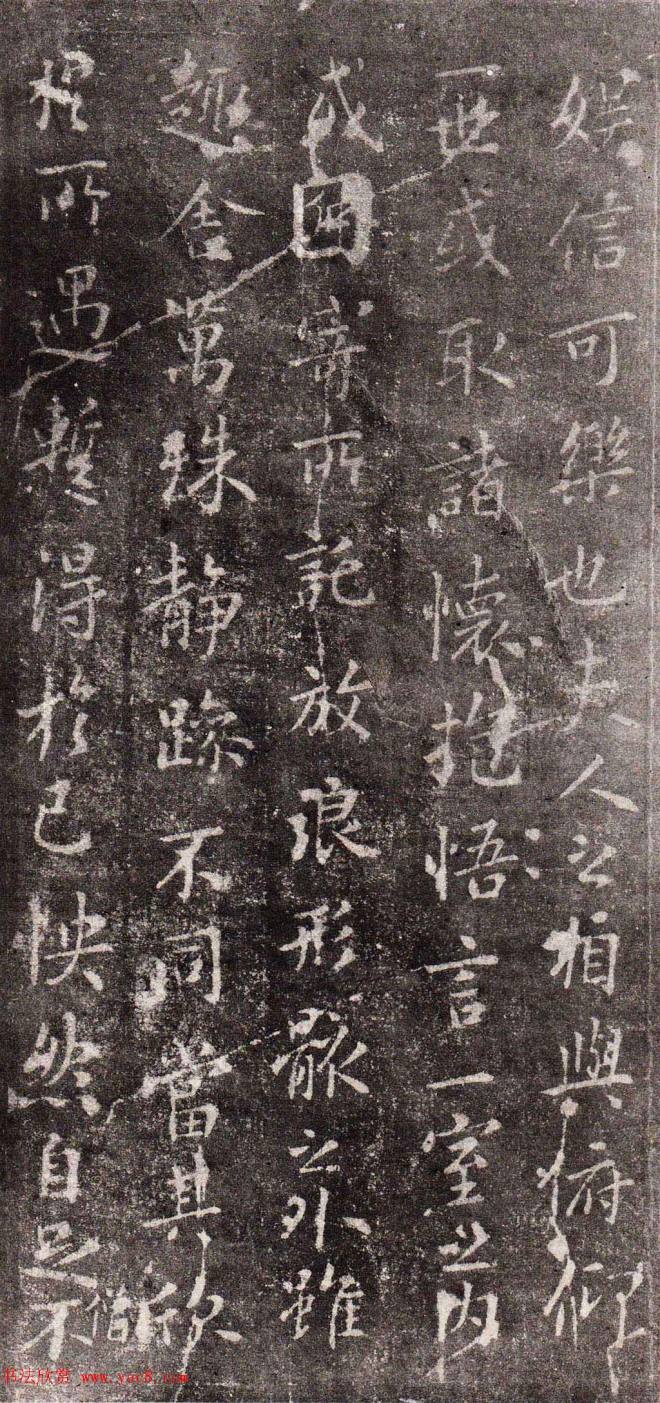 娱信可樂也夫人之相與俯仰
一世或取諸懷抱悟言一室之内
或因寄所託放浪形骸之外雖
趣舍萬殊静躁不同當其欣
於所遇暫得於己怏然自足不
僧
书法欣赏 www.yac8.com